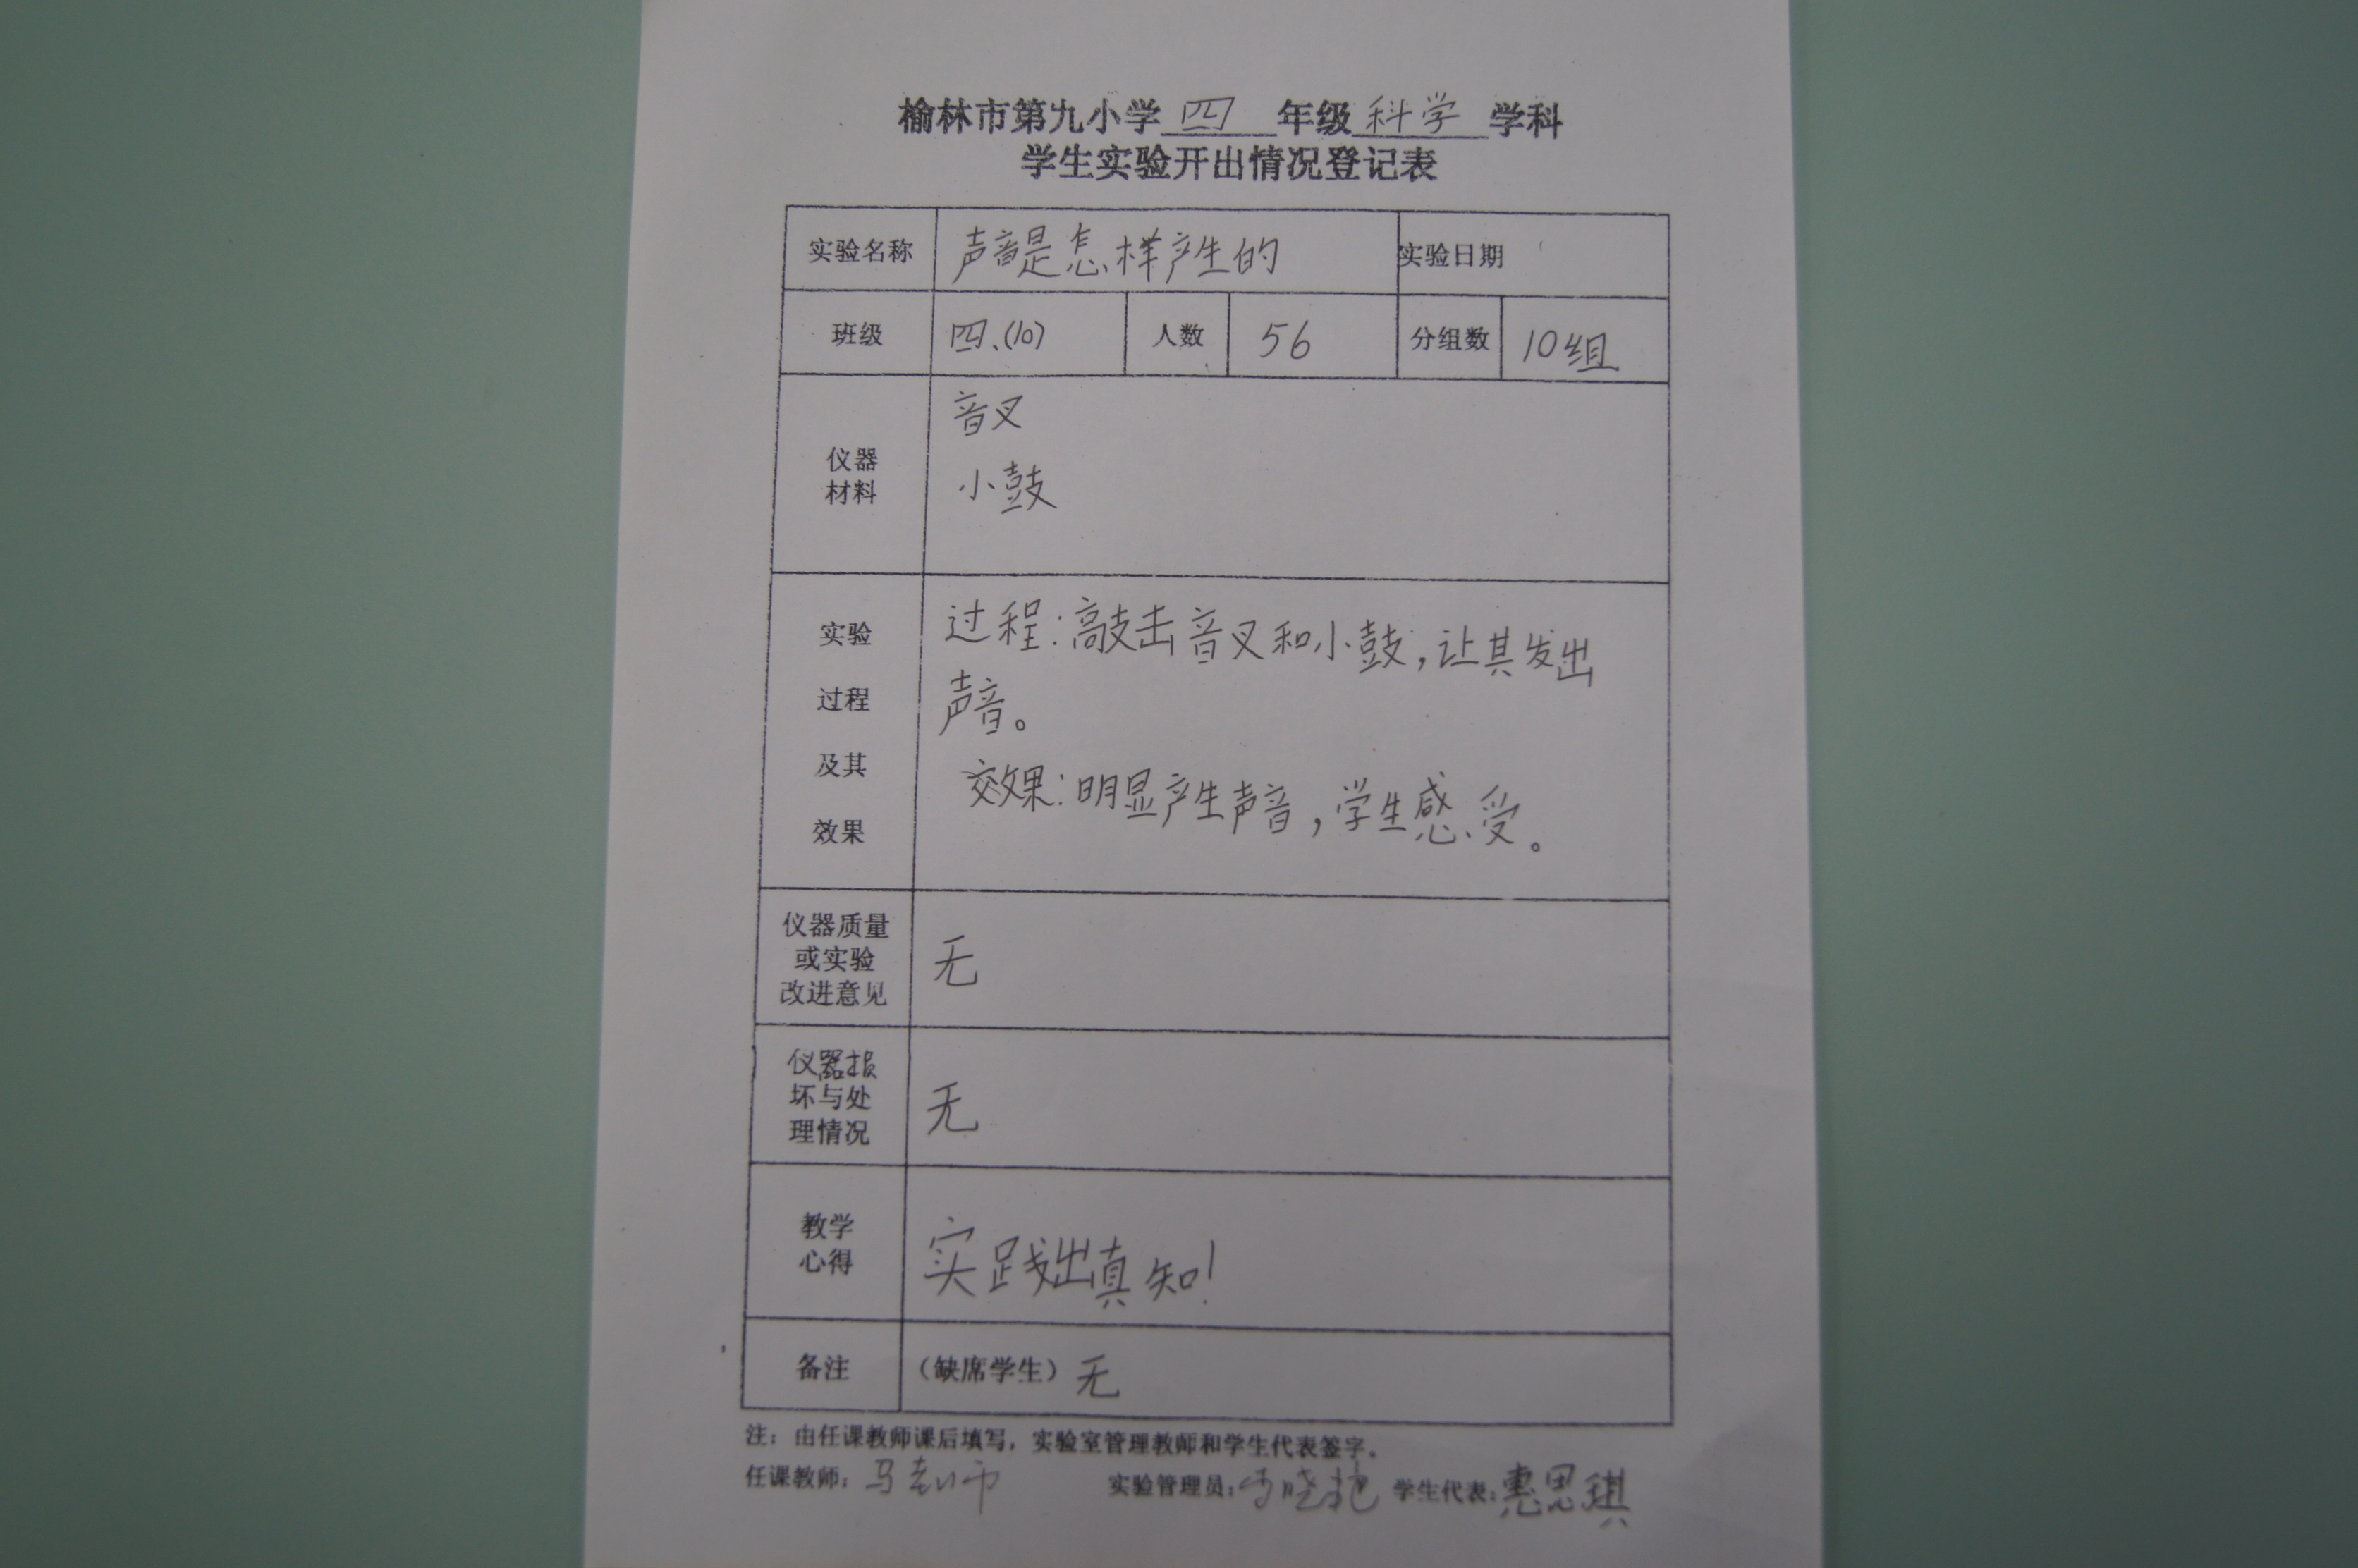 榆林市第九小学 四 年级 科学 学科
学生实验开出情况登记表
实验名称 声音是怎样产生的 实验日期
班级 四、(10) 人数 56 分组数 10组
仪器
材料
音叉
小鼓
实验
过程
及其
效果
过程:敲击音叉和小鼓,让其发出
声音。
效果:明显产生声音,学生感受。
仪器质量
或实验
改进意见
无
仪器损
坏与处
理情况
无
教学
心得
实践出真知!
备注 (缺席学生) 无
注:由任课教师课后填写,实验室管理教师和学生代表签字。
任课教师:马老师 实验管理员: 学生代表:惠思琪